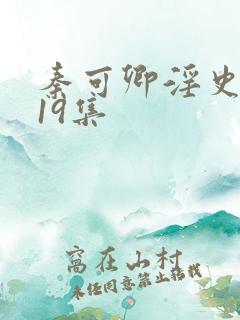 秦可卿淫史
19集
窝在山村
未经同意禁止转载